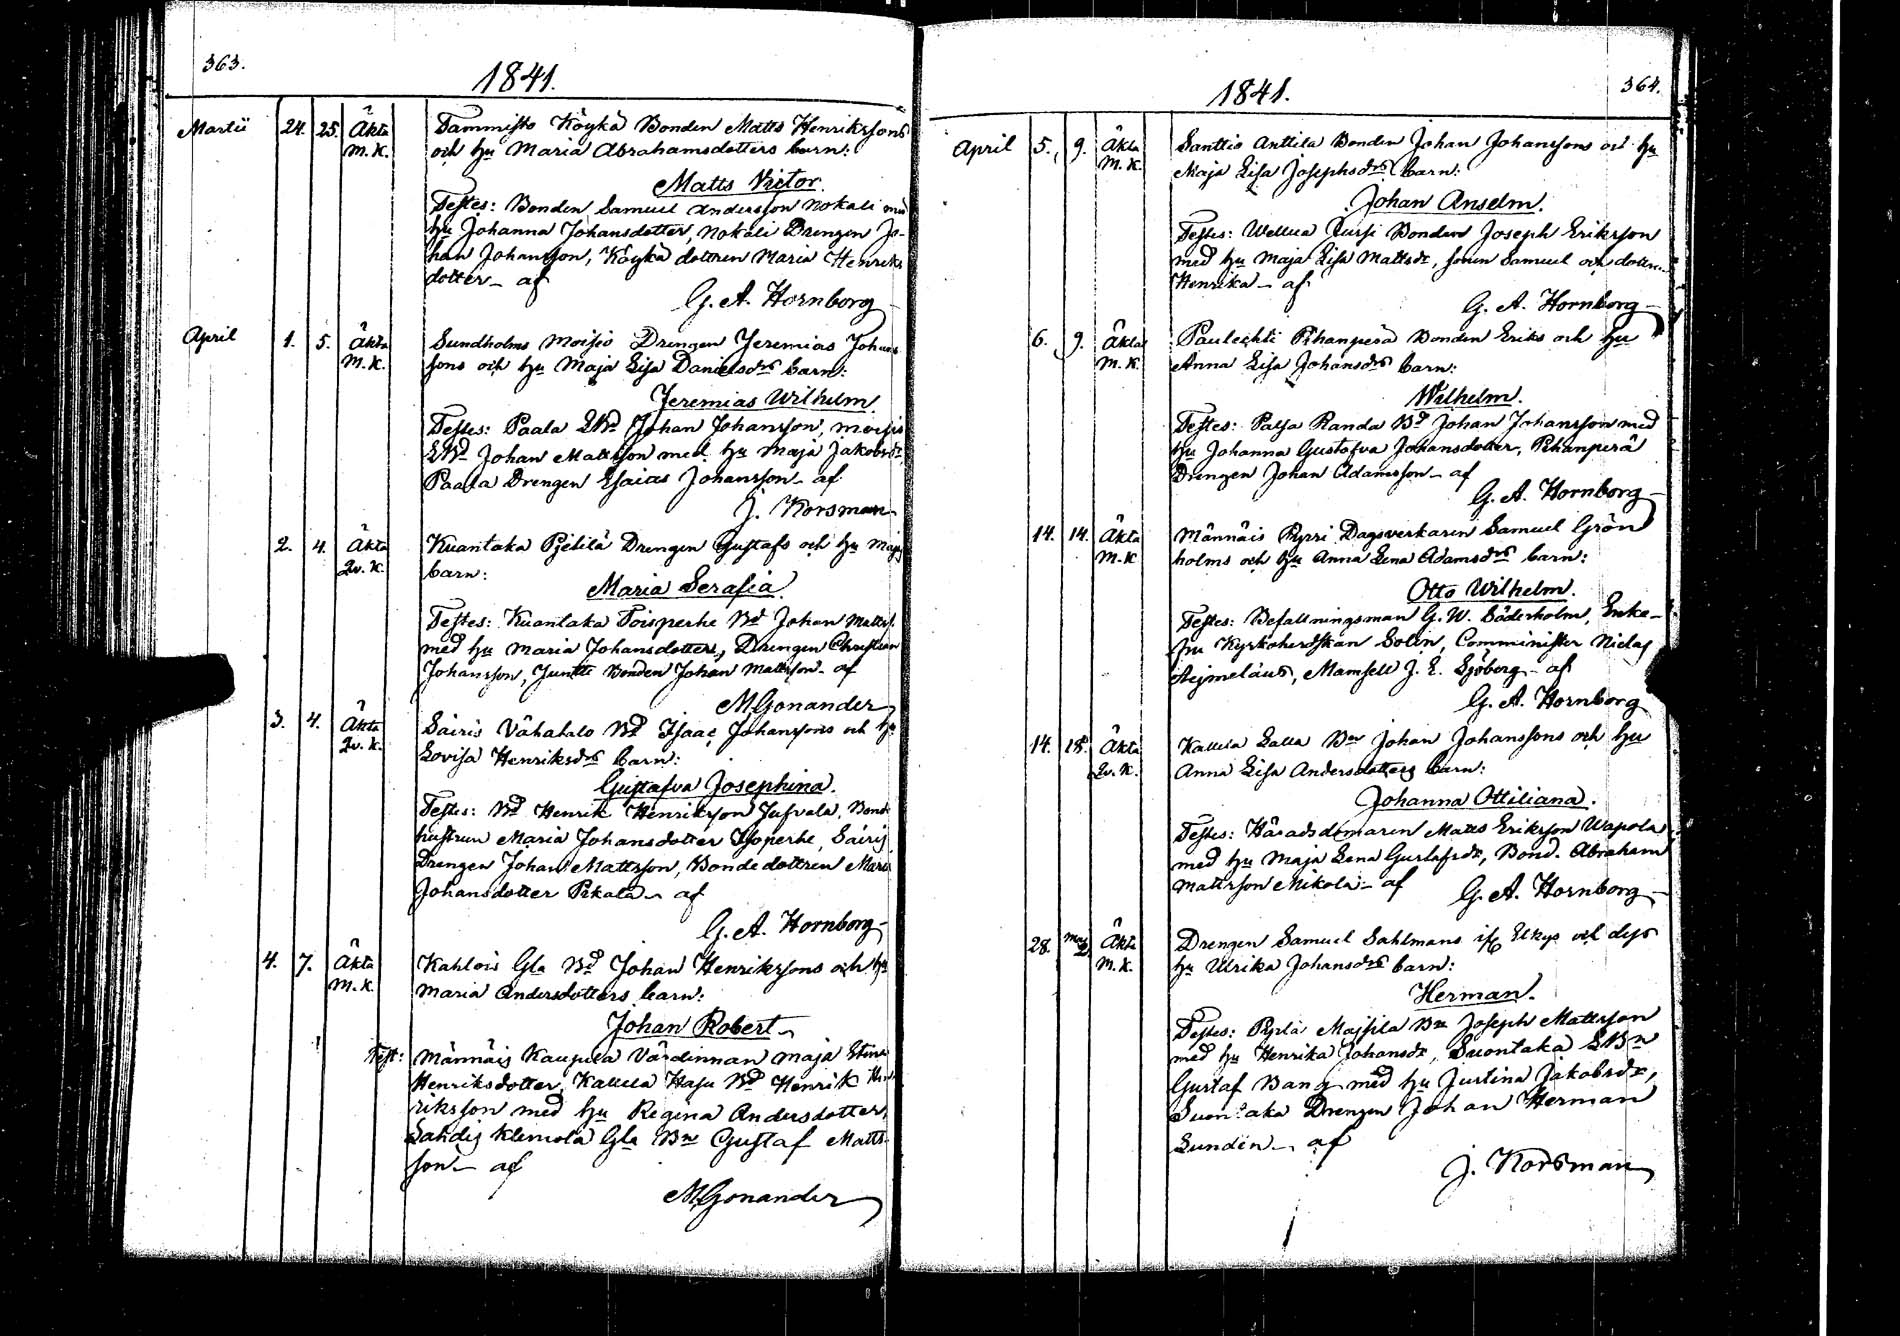 363.
1841.
Martii 24. 25. Äkta M.K. Tammisto Köykä Bonden Matts Henrikssons
och hu Maria Abrahamsdotters barn:
Matts Victor.
Testes: Bonden Samuel Andersson Nokali med
hu Johanna Johansdotter, Nokali Drengen Jo-
han Johansson, Köykä dottren Maria Henriks
dotter – af
G. A. Hornborg
April 1. 5. Äkta M.K. Sundholms Moisio Drengen Jeremias Johans
sons och hu Maja Lisa Danielsdrs barn:
Jeremias Wilhelm.
Testes: Paala LBd Johan Johansson, Moisio
LBd Johan Mattsson med hu Maja Jakobsdr,
Paala Drengen Esaias Johansson – af
J. Korsman
2. 4. Äkta Qv.K. Kuantaka Pjelilä Drengen Gustafs och hu Majas
barn:
Maria Serafia.
Testes: Kuantaka Toisperhe Bd Johan Mattss.
med hu Maria Johansdotter, Drengen Christian
Johansson, Juntti Bonden Johan Mattsson – af
M Gonander
3. 4. Äkta Qv.K. Säiris Vähätalo Bd Isaac Johanssons och hu
Lovisa Henriksdrs barn:
Gustafva Josephina.
Testes: Bd Henrik Henriksson Jufvala, Bond
hustrun Maria Johansdotter Isoperhe, Säiris
Drengen Johan Mattsson, Bondedottren Maria
Johansdotter Pekala – af
G. A. Hornborg
4. 7. Äkta M.K. Kahlois Gla Bd Johan Henrikssons och hu
Maria Andersdotters barn:
Johan Robert
Test: Männäis Kaupila Värdinnan Maja Stina
Henriksdotter, Kallela Hasu Bd Henrik Hen-
riksson med hu Regina Andersdotter,
Sahdis Klemola Gla Bn Gustaf Matts-
son – af
M Gonander
364.
1841.
April 5. 9. Äkta M.K. Santtio Anttila Bonden Johan Johanssons och hu
Maja Lisa Josephsdrs barn:
Johan Anselm.
Testes: Wellua Jussi Bonden Joseph Eriksson
med hu Maja Lisa Mattsdr, sonen Samuel och dottren
Henrika – af
G. A. Hornborg
6. 9. Äkta M.K. Paulechti Pihanperä Bonden Eriks och hu
Anna Lisa Johansdrs barn:
Wilhelm.
Testes: Palsa Randa Bd Johan Johansson med
hu Johanna Gustafva Johansdotter, Pihanperä
Drengen Johan Adamsson – af
G. A. Hornborg
14. 14. Äkta M.K Männäis Pyrri Dagsverkaren Samuel Grön
holms och hu Anna Lena Adamsdrs barn:
Otto Wilhelm.
Testes: Befallningsman G. W. Söderholm, Enke-
fru Kyrkoherdskan Solin, Comminister Niclas
Aejmelæus, Mamsell J. E. Sjöberg – af
G. A. Hornborg
14. 18. Äkta Qv.K. Kallela Lalla Bn Johan Johanssons och hu
Anna Lisa Andersdotters barn:
Johanna Ottiliana.
Testes: Häradsdomaren Matts Eriksson Wapola
med hu Maja Lena Gustafsdr, Bond. Abraham
Mattsson Mikola – af
G. A. Hornborg
28. Maj 2. Äkta M.K. Drengen Samuel Sahlmans ifr Elkys och dess
hu Ulrika Johansdrs barn:
Herman.
Testes: Pyrlä Majsila Bn Joseph Mattsson
med hu Henrika Johansdr, Suontaka LBn
Gustaf Bang med hu Justina Jakobsdr,
Suontaka Drengen Johan Herman
Lundén – af
J. Korsman